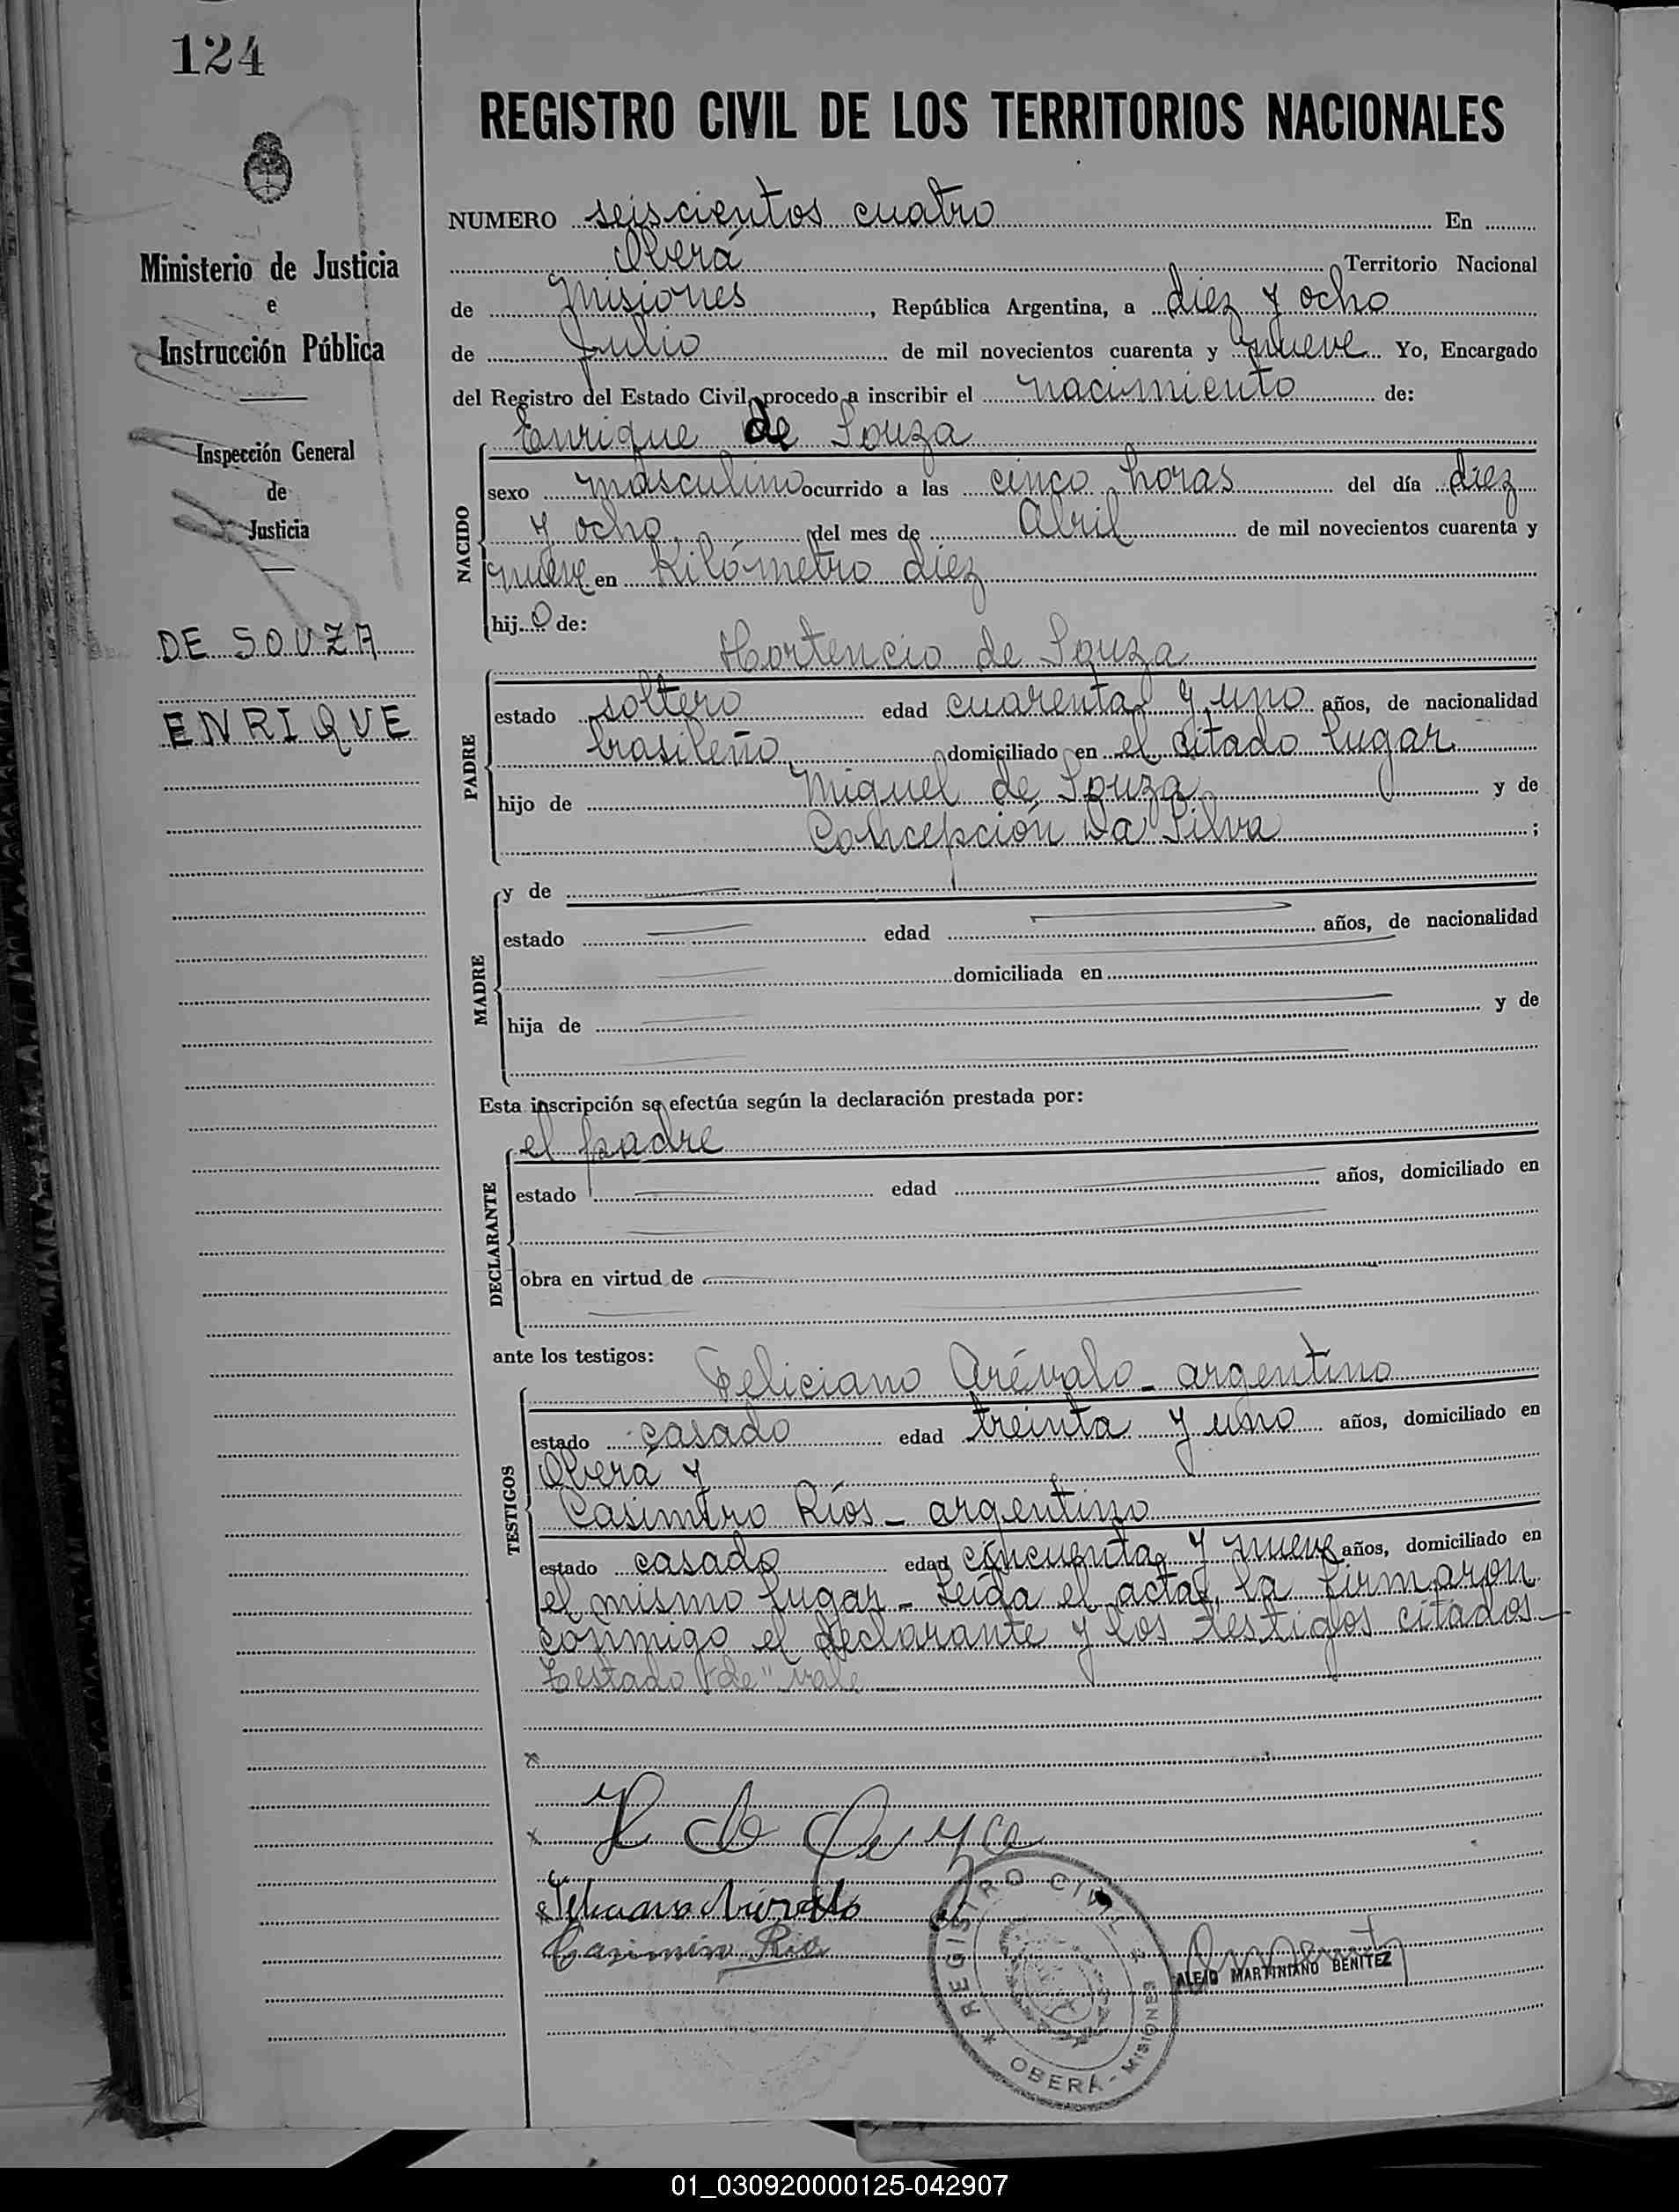 124
REGISTRO CIVIL DE LOS TERRITORIOS NACIONALES
Ministerio de Justicia
e
Instrucción Pública
Inspección General
de
Justicia
DE SOUZA
ENRIQUE
NUMERO seiscientos cuatro En
Oberá Territorio Nacional
de Misiones, República Argentina, a diez y ocho
de Julio de mil novecientos cuarenta y nueve Yo, Encargado
del Registro del Estado Civil, procedo a inscribir el nacimiento de:
Enrique de Souza
NACIDO
sexo masculino ocurrido a las cinco horas del día diez
y ocho del mes de Abril de mil novecientos cuarenta y
nueve en Kilómetro diez
hijo de:
Hortencio de Souza
PADRE
estado soltero edad cuarenta y uno años, de nacionalidad
brasileño, domiciliado en el citado lugar
hijo de Miguel de Souza y de
Concepción Da Silva ;
MADRE
y de
estado edad años, de nacionalidad
domiciliada en
hija de y de
Esta inscripción se efectúa según la declaración prestada por:
el padre
DECLARANTE
estado edad años, domiciliado en
obra en virtud de
ante los testigos:
Feliciano Arévalo - argentino
TESTIGOS
estado casado edad treinta y uno años, domiciliado en
Oberá y
Casimiro Ríos - argentino
estado casado edad cincuenta y nueve años, domiciliado en
el mismo lugar - Leída el acta, la firmaron
conmigo el declarante y los testigos citados
Testado "de" vale
H de Souza
Feliciano Arévalo
Casimiro Rios
REGISTRO CIVIL
OBERÁ - MISIONES
ALEJO MARTINIANO BENITEZ
01_030920000125-042907